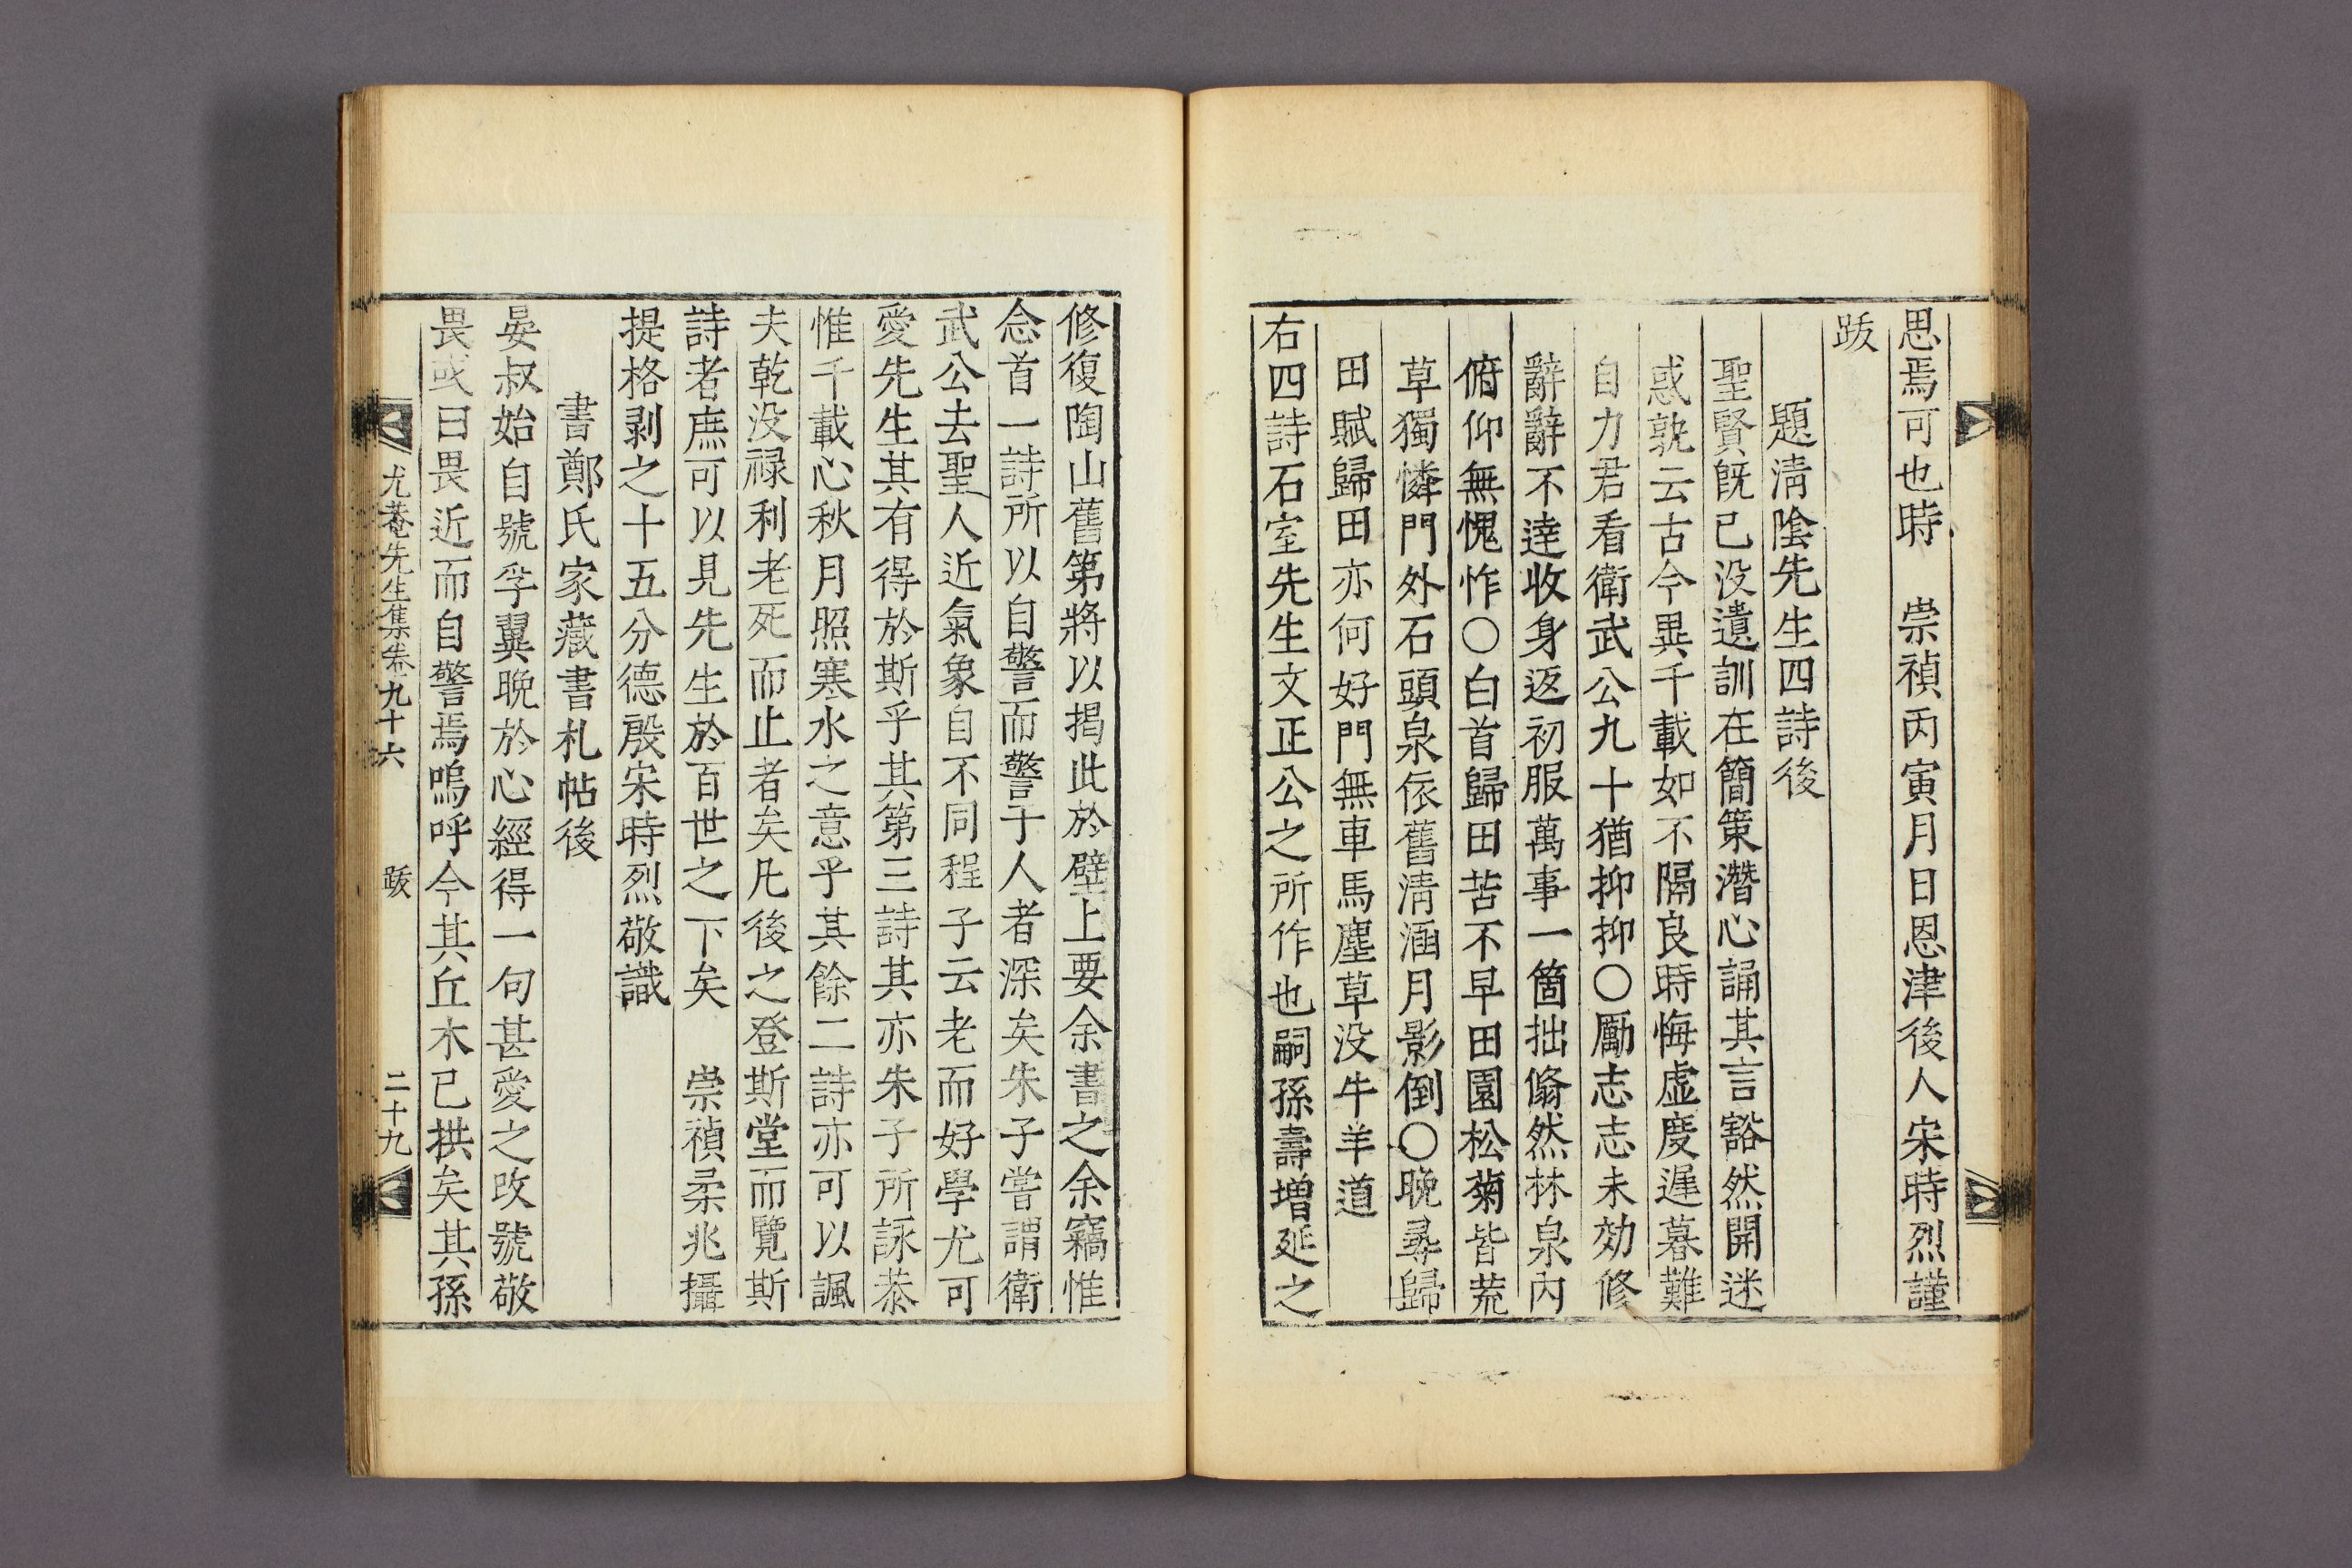 思焉可也時 崇禎丙寅月日恩津後人宋時烈謹
跋
題淸陰先生四詩後
聖賢旣已没遺訓在簡策潛心誦其言豁然開迷
惑孰云古今異千載如不隔良時悔虛度遲暮難
自力君看衛武公九十猶抑抑○勵志志未効修
辭辭不達收身返初服萬事一箇拙翛然林泉內
俯仰無愧怍○白首歸田苦不早田園松菊皆荒
草獨憐門外石頭泉依舊淸涵月影倒○晚尋歸
田賦歸田亦何好門無車馬塵草没牛羊道
右四詩石室先生文正公之所作也嗣孫壽增延之
修復陶山舊第將以揭此於壁上要余書之余竊惟
念首一詩所以自警而警于人者深矣朱子嘗謂衛
武公去聖人近氣象自不同程子云老而好學尤可
愛先生其有得於斯乎其第三詩其亦朱子所詠恭
惟千載心秋月照寒水之意乎其餘二詩亦可以諷
夫乾没祿利老死而止者矣凡後之登斯堂而覽斯
詩者庶可以見先生於百世之下矣 崇禎柔兆攝
提格剥之十五分德殷宋時烈敬識
書鄭氏家藏書札帖後
晏叔始自號孚翼晚於心經得一句甚愛之改號敬
畏或曰畏近而自警焉嗚呼今其丘木已拱矣其孫
尤菴先生集卷九十六 跋 二十九